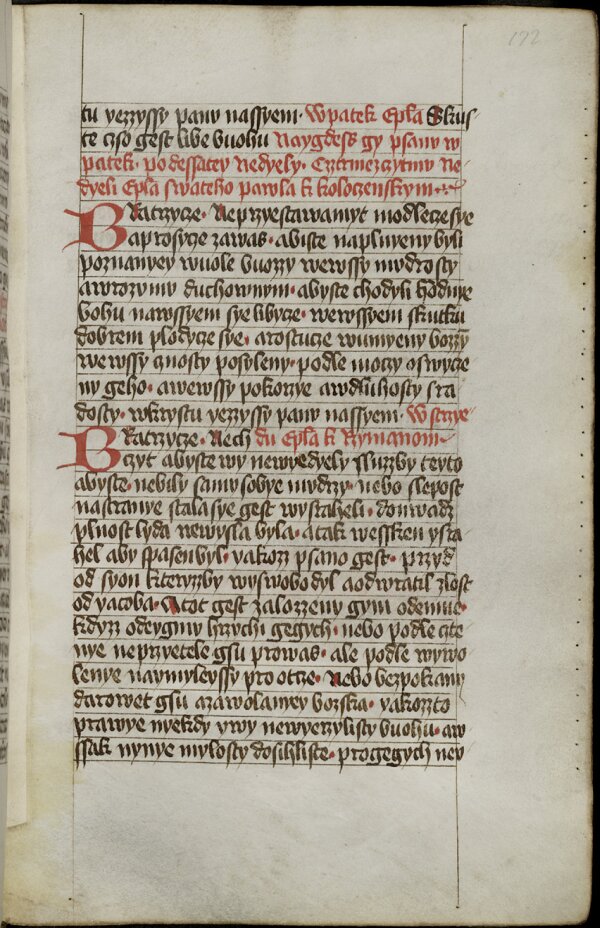 172
tu yezzyssy panu nassyem · W patek Epła Skus
te czso gest libe buohu Naygdess gy psanu w
patek · po dessatey nedyely · Cztrmezczytmu ne
dyeli Epła swateho pawla k koloczenskym
Bratrzycze · Neprzyestawamyt modlecze sye
a prosycze zawas · abiste napluyeny byli
poznanyey wuole buozzy wewssy mudrosty
a wrozumu duchownym · abyste chodyli hodnye
bohu nawssyem sye libycze · wewssyem skutku
dobrem plodycze sye · a rostucze wumyeny bozzy
we wssy cznosty posyleny · podle moczy oswycze
ny geho · a wewssy pokorzye a wdluhosty s ra
dosty · wkrystu yezzyssy panu nassyem · W strzye
Bratrzycze · Nech du Epła k Rymanom
czyt abyste wy newyedyely sluzby teyto
abyste · nebily samy sobye mudrzy · nebo slepost
nastranye stala sye gest wystraheli · donwadz
plnost lyda newysla byla · a tak wessken ysra
hel aby spasen byl · yakozz psano gest · przyd
od syon kteryzby wyswobodyl a odwratil zlost
od yacoba · A tot gest zalozzeny gym odemne ·
kdyzz odeygmy hrzychi gegych · nebo podle cite
nye neprzyetele gsu prowas · ale podle wywo
lenye naymyleyssy pro otcze · Nebo bezpokany
darowet gsu a zawolanyey bozska · yakozto
prawye nyekdy ywy newyerzylisty buohu · aw
ssak nynye mylosty dosihliste · progegych new